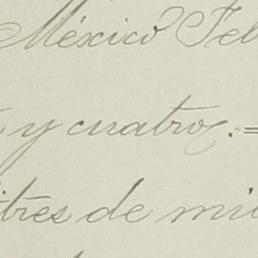 México Fe
y cuatro. =
tres de mi